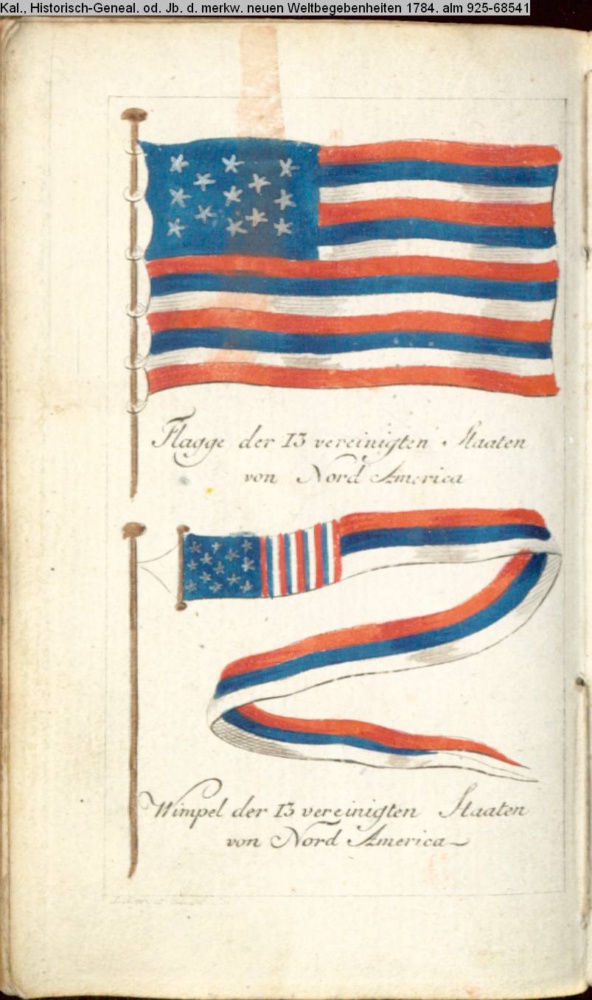 Kal., Historisch-Geneal. od. Jb. d. merkw. neuen Weltbegebenheiten 1784. alm 925-68541
Flagge der 13 vereinigten Staaten
von Nord America
Wimpel der 13 vereinigten Staaten
von Nord America